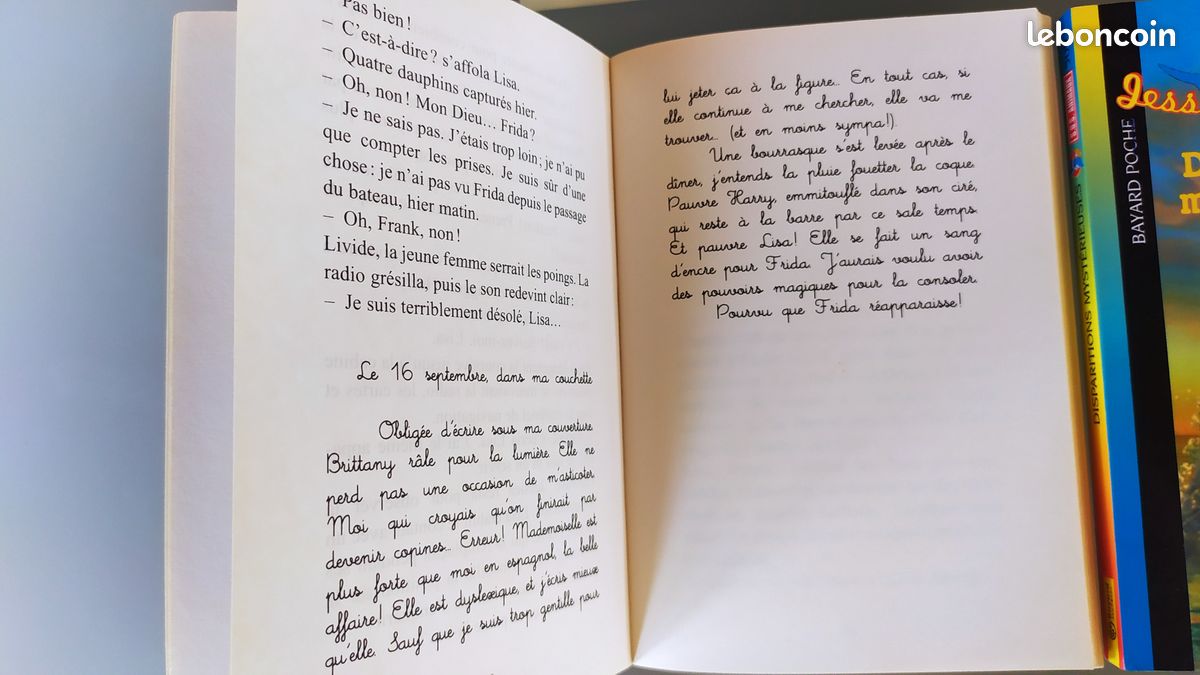 Pas bien !
– C'est-à-dire ? s'affola Lisa.
– Quatre dauphins capturés hier.
– Oh, non ! Mon Dieu… Frida ?
– Je ne sais pas. J'étais trop loin ; je n'ai pu
que compter les prises. Je suis sûr d'une
chose : je n'ai pas vu Frida depuis le passage
du bateau, hier matin.
– Oh, Frank, non !
Livide, la jeune femme serrait les poings. La
radio grésilla, puis le son redevint clair :
– Je suis terriblement désolé, Lisa…
Le 16 septembre, dans ma couchette
Obligée d'écrire sous ma couverture.
Brittany râle pour la lumière. Elle ne
perd pas une occasion de m'asticoter.
Moi qui croyais qu'on finirait par
devenir copines… Erreur ! Mademoiselle est
plus forte que moi en espagnol, la belle
affaire ! Elle est dyslexique, et j'écris mieux
qu'elle. Sauf que je suis trop gentille pour
lui jeter ça à la figure… En tout cas, si
elle continue à me chercher, elle va me
trouver… (et en moins sympa !).
Une bourrasque s'est levée après le
dîner, j'entends la pluie fouetter la coque.
Pauvre Harry, emmitouflé dans son ciré,
qui reste à la barre par ce sale temps.
Et pauvre Lisa ! Elle se fait un sang
d'encre pour Frida. J'aurais voulu avoir
des pouvoirs magiques pour la consoler.
Pourvu que Frida réapparaisse !
leboncoin
DISPARITIONS MYSTÉRIEUSES
BAYARD POCHE
Jess
D
m